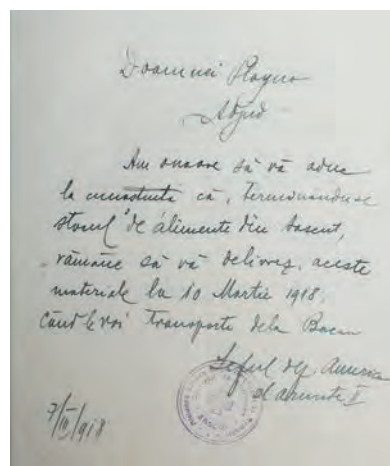 Doamnei Plagino
Adjud
Am onoare să vă aduc
la cunostuntă că, terminanduse
stocul de alimente din Sascut,
rămâne să vă delivrez, aceste
materiale la 10 Martie 1918,
când le voi transporta dela Bacau
Seful
7/III/918